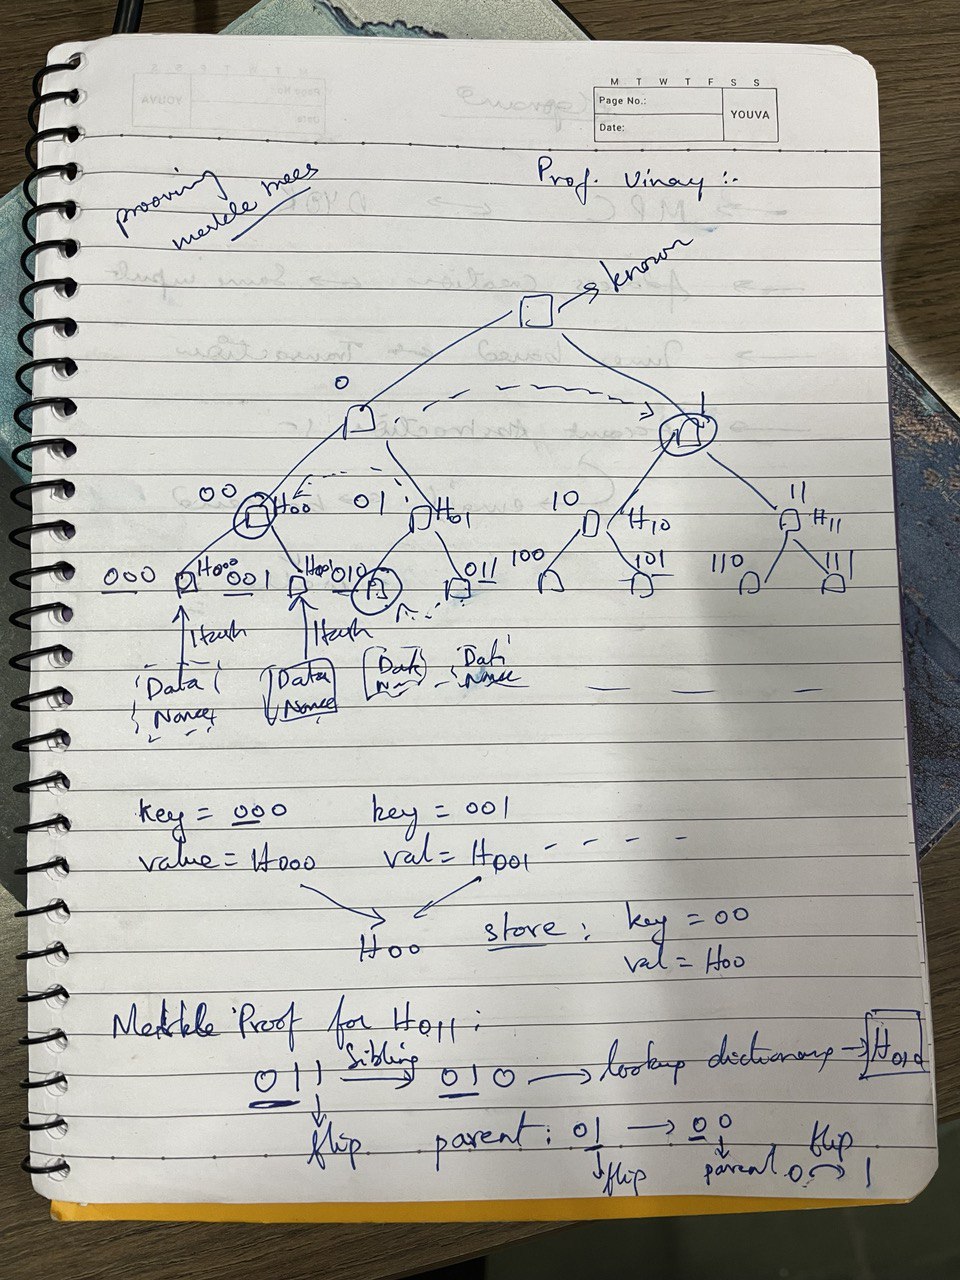 M T W T F S S
Page No.:
YOUVA
Date:
prooving
merkle trees
Prof. Vinay :-
known
0
1
00
H00
01
H01
10
H10
11
H11
000
H000
001
H001
010
011
100
101
110
111
Hash
Hash
Data
Nonce
Data
Nonce
Data
Data
Nonce
key = 000 key = 001
value = H000 val = H001 - - - -
H00 store : key = 00
val = H00
Merkle Proof for H011 :
011 Sibling 010 lookup dictionary H010
flip parent : 01 00 flip
flip parent 0 1